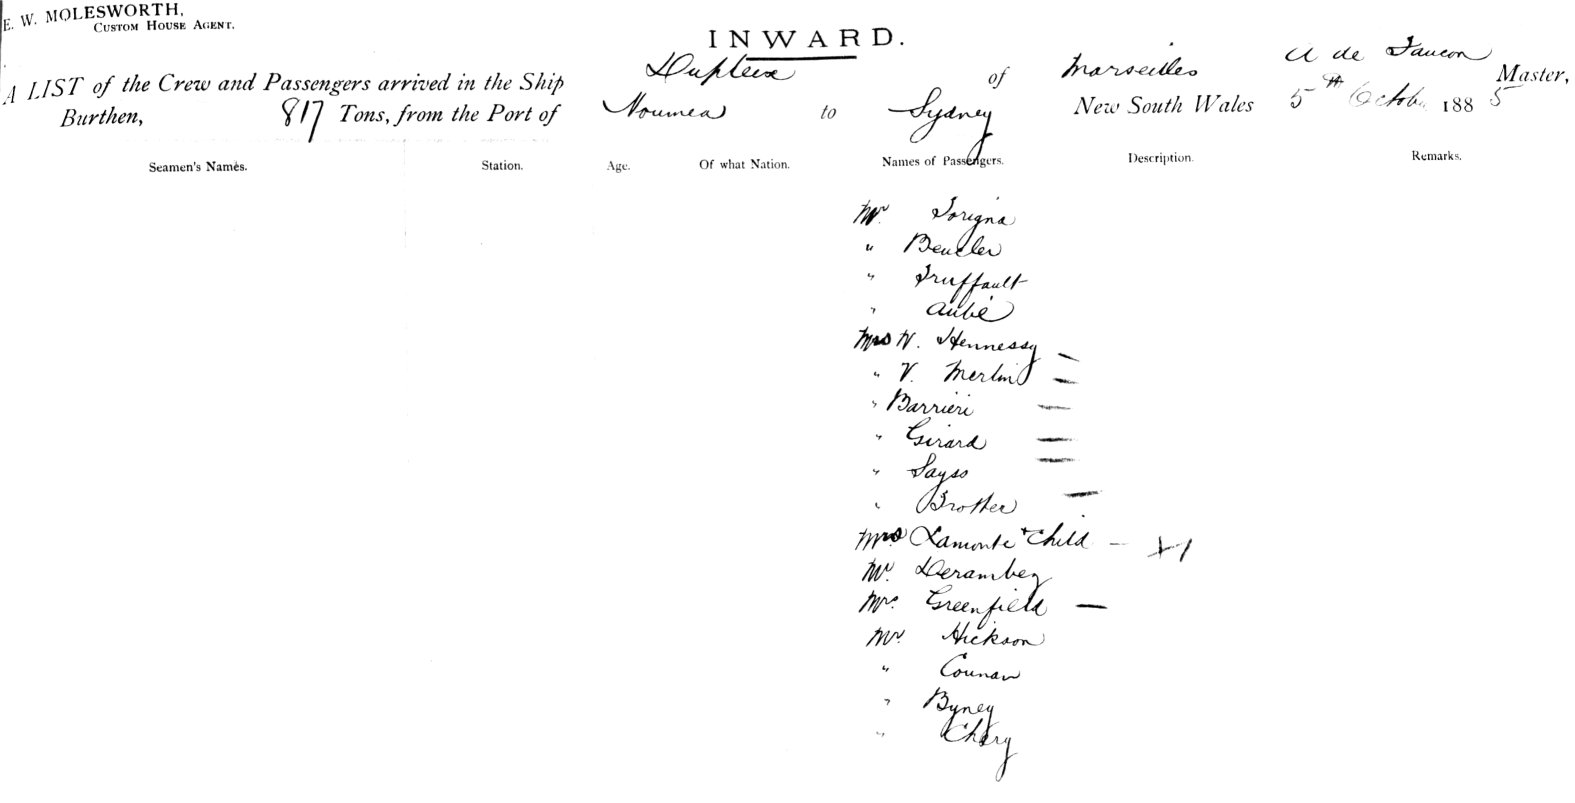 E. W. MOLESWORTH,
CUSTOM HOUSE AGENT.
INWARD.
A LIST of the Crew and Passengers arrived in the Ship Dupleix of Marseilles A de Faucon Master,
Burthen, 817 Tons, from the Port of Noumea to Sydney New South Wales 5th October 1885
Seamen's Names. Station. Age. Of what Nation. Names of Passengers. Description. Remarks.
Mr Torigna
" Beucler
" Truffault
" Aubé
Mrs W. Hennessy —
" V. Merlin —
" Barrieri —
" Girard —
" Sayso —
" Brother —
Mrs Lamonte + Child —
Mr. Derambez
Mrs. Greenfield —
Mr. Hickson
" Counan
" Byney
" Charg